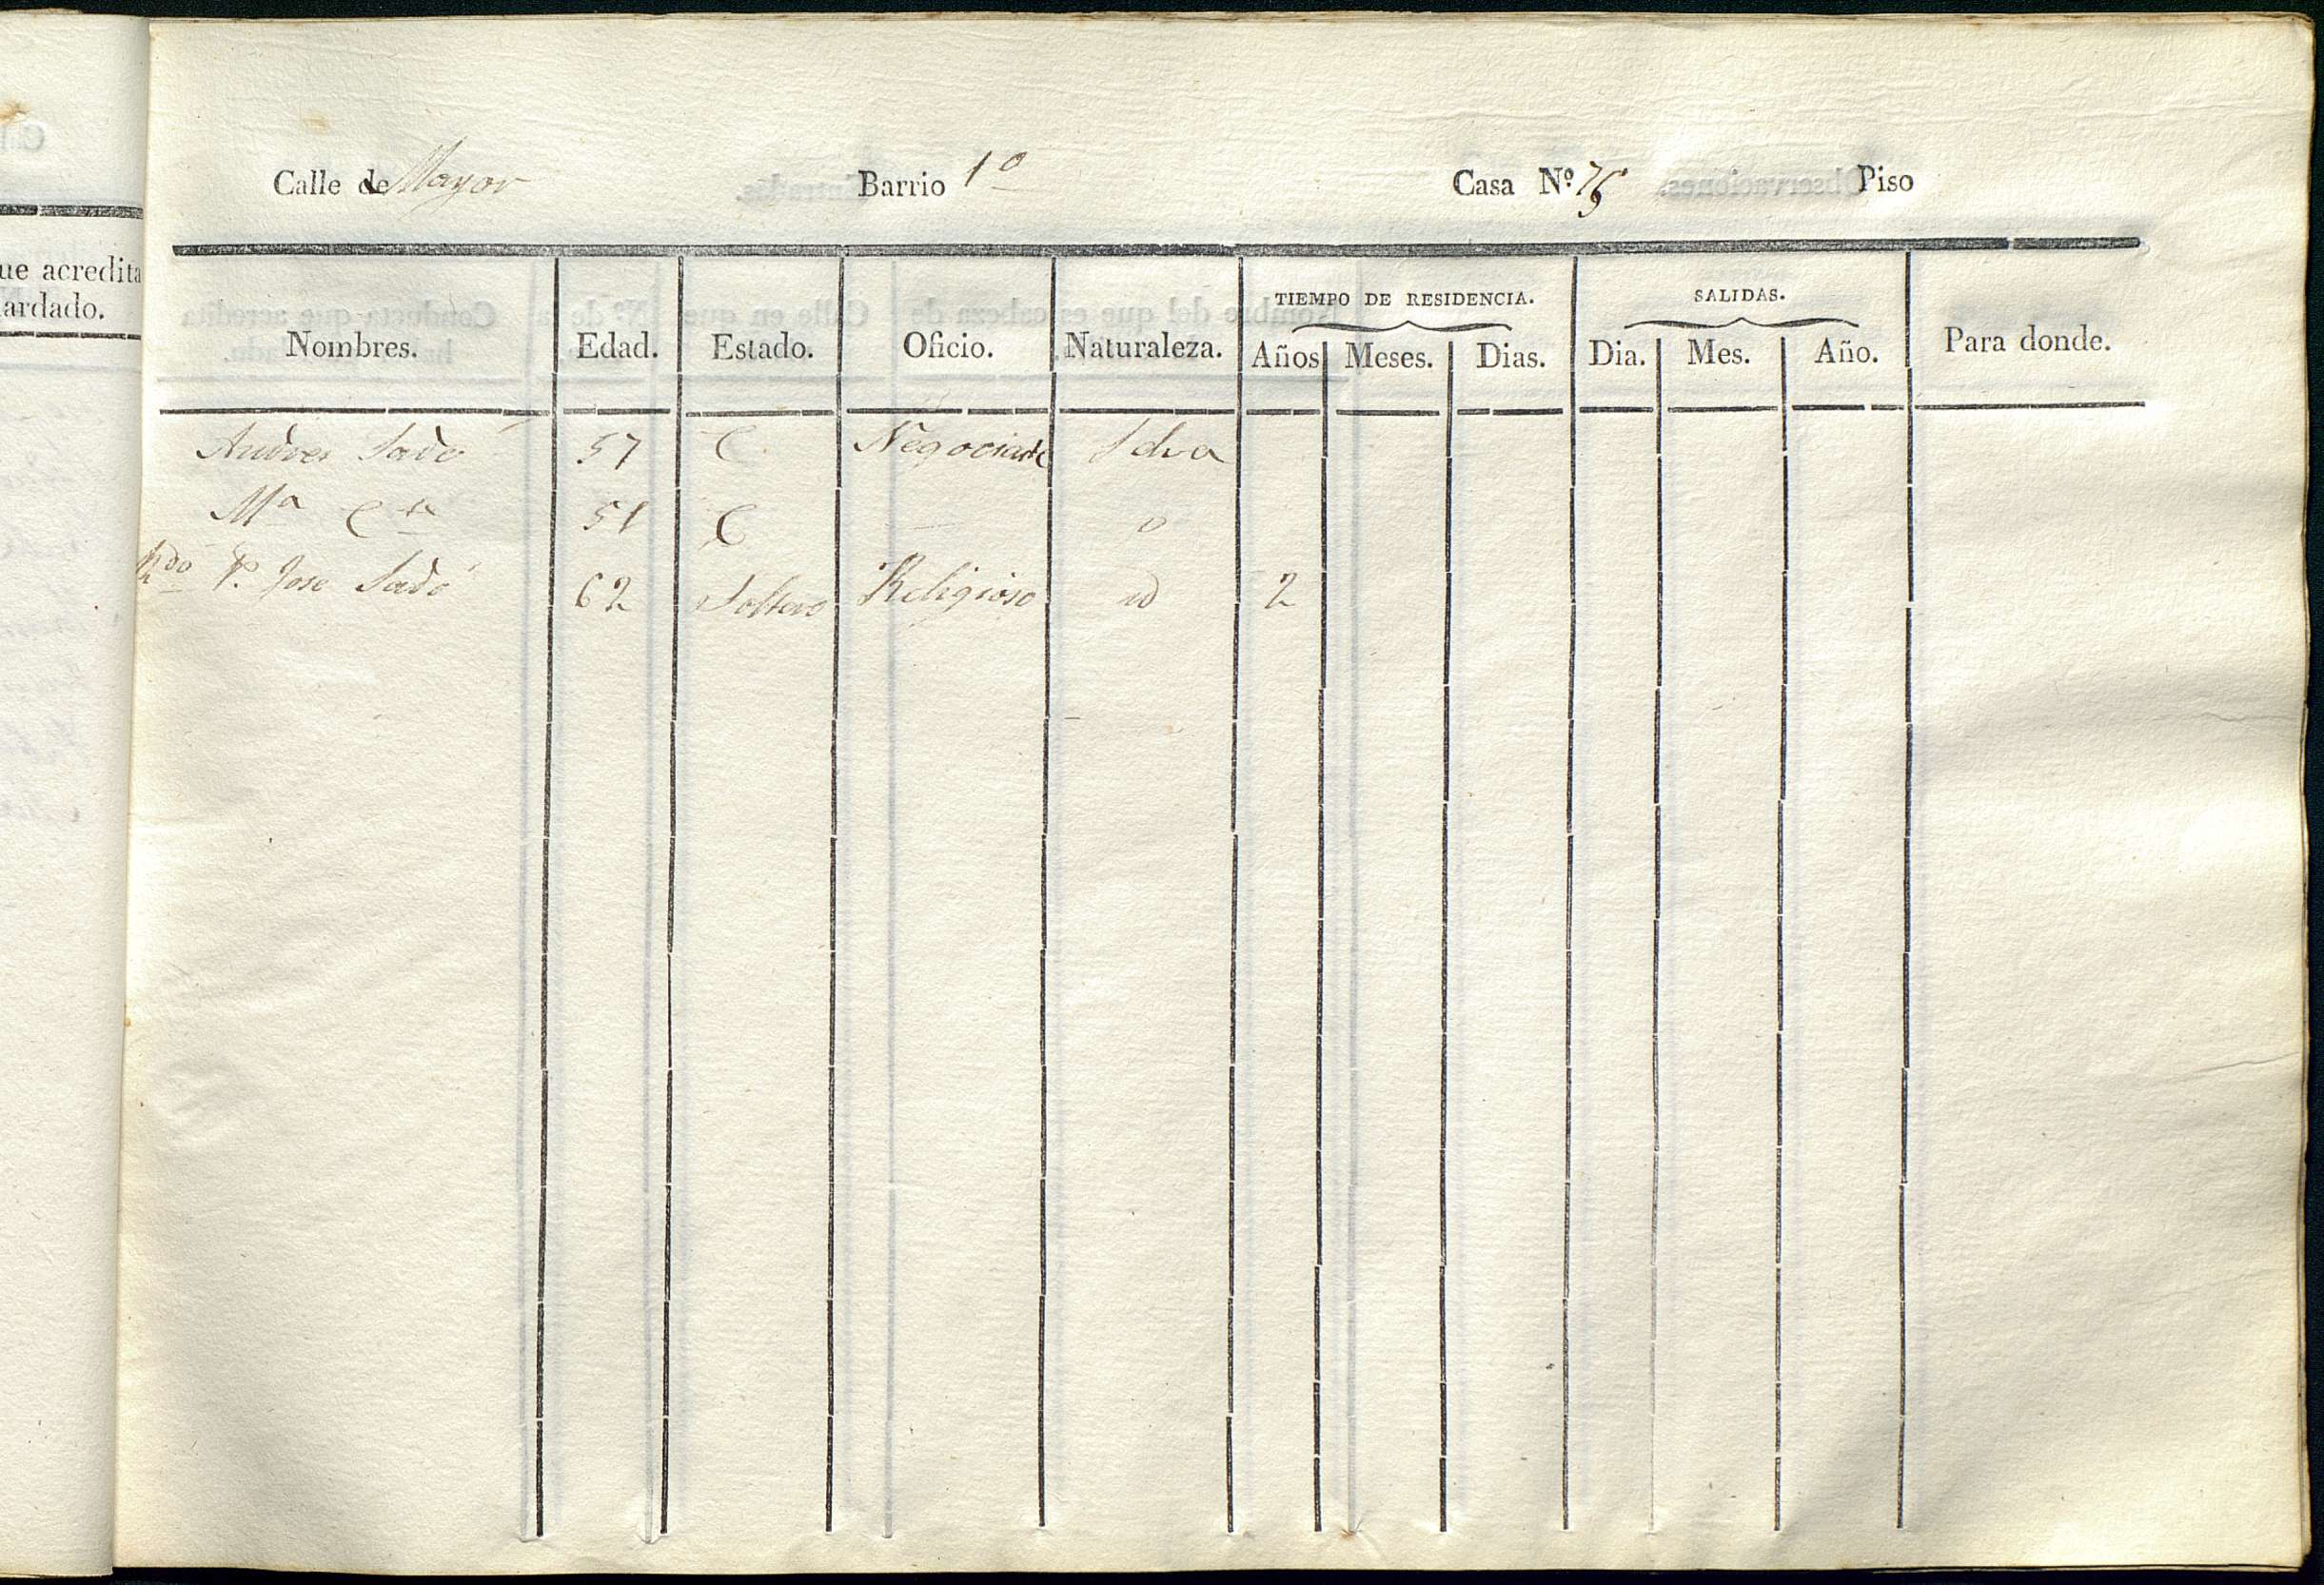 ue acredita
ardado.
Calle de Mayor Barrio 1º Casa Nº. Piso
TIEMPO DE RESIDENCIA. SALIDAS.
Nombres. Edad. Estado. Oficio. Naturaleza. Años Meses. Dias. Dia. Mes. Año. Para donde.
Andres Sadó 57 C. Negociante Selva
Mª 51 C
Rdo P. Jose Sadó 62 Soltero Religioso id 2